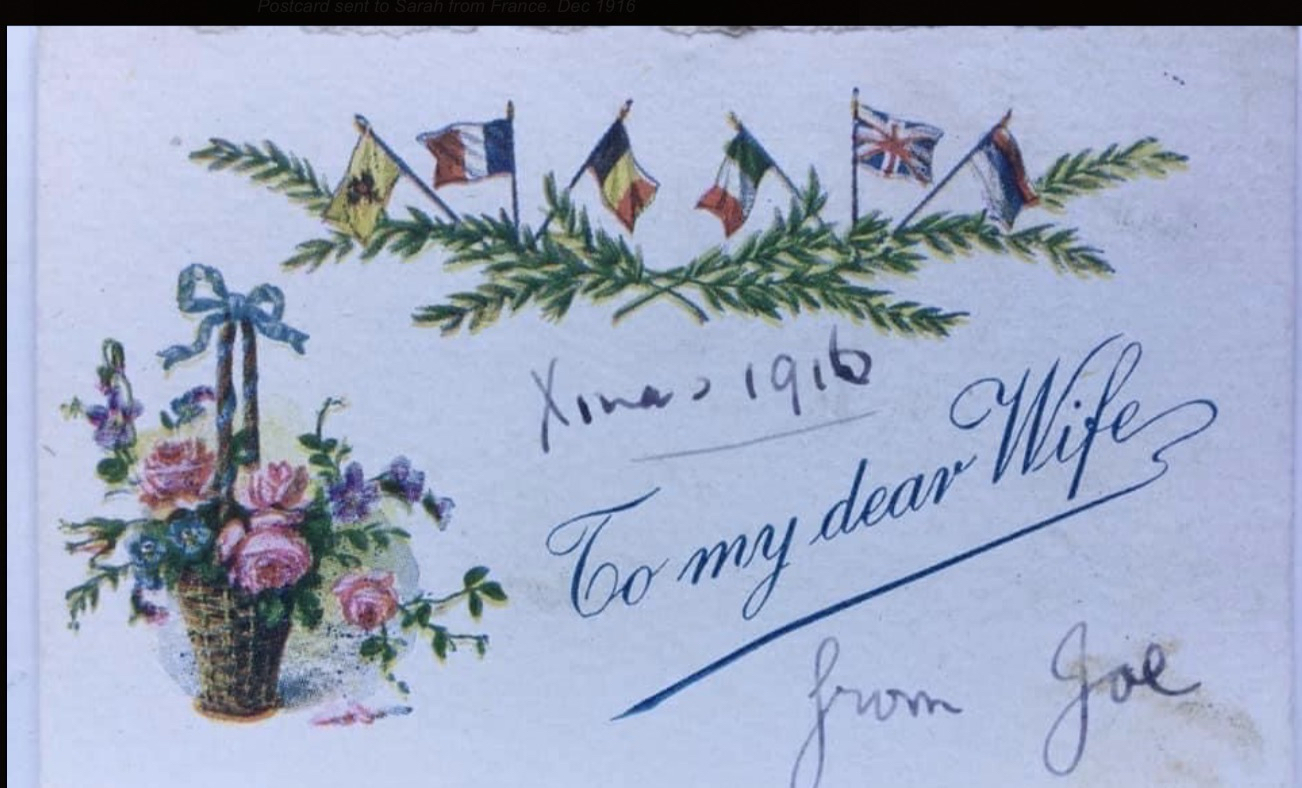 Postcard sent to Sarah from France. Dec 1916
Xmas 1916
To my dear Wife
from Joe